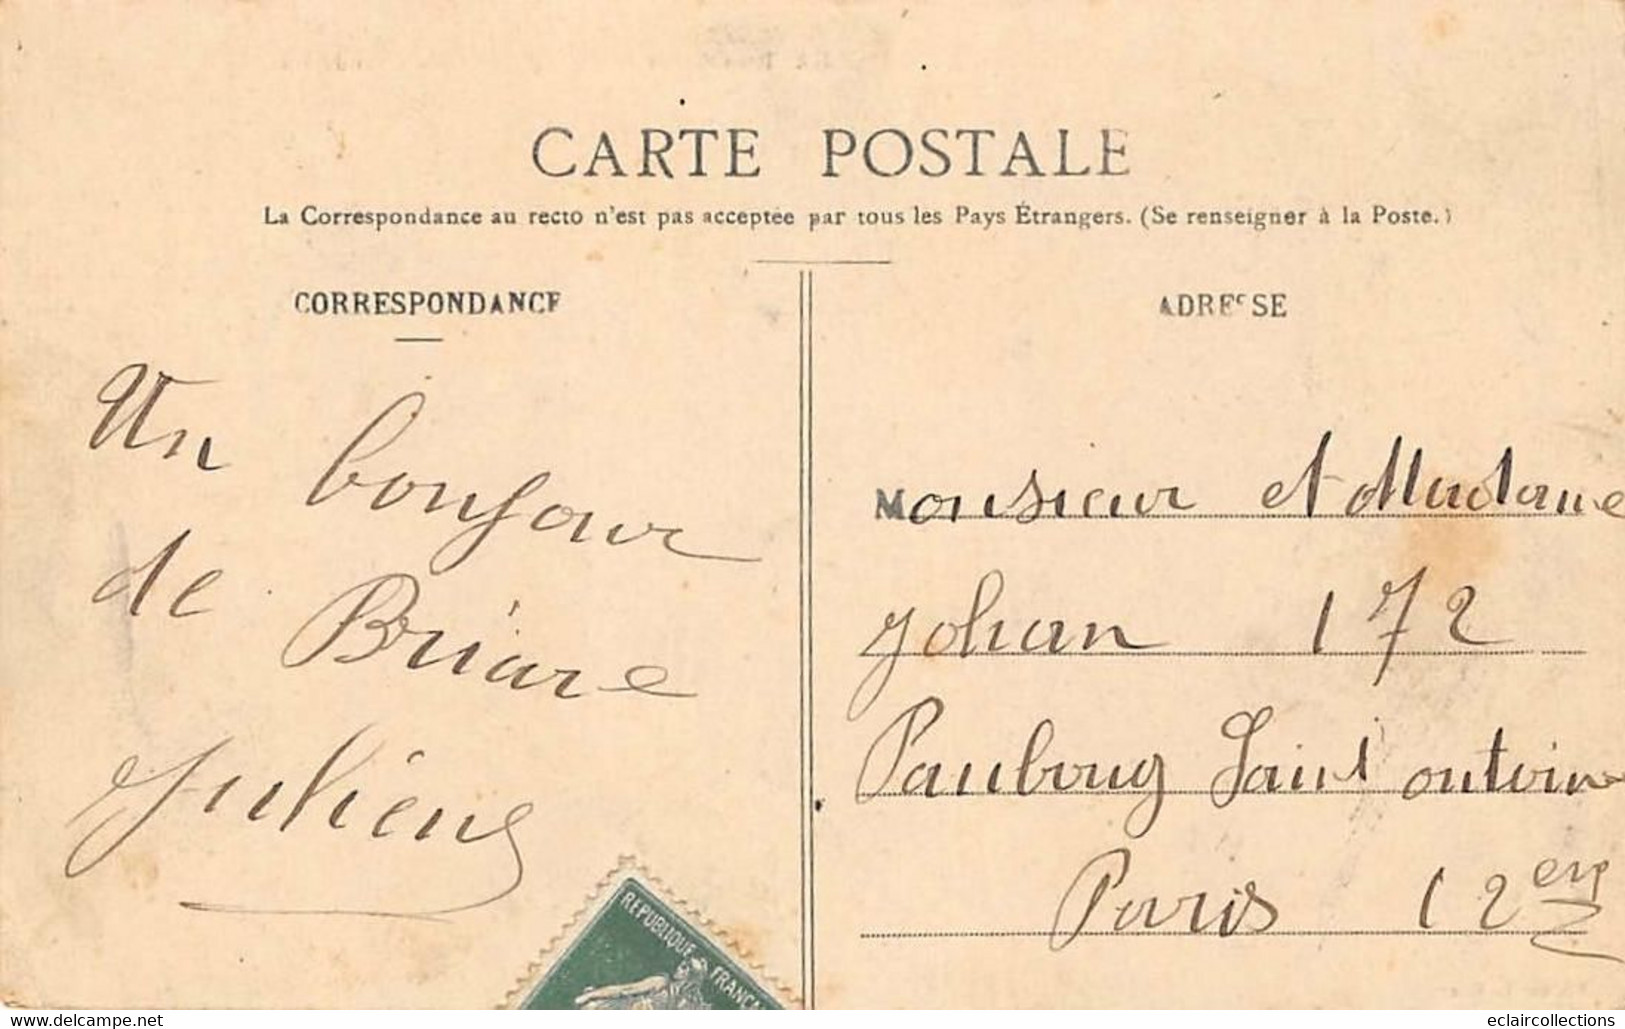 CARTE POSTALE
La Correspondance au recto n'est pas acceptée par tous les Pays Étrangers. (Se renseigner à la Poste.)
CORRESPONDANCE
Un bonjour
de Briare
Juliene
ADRESSE
Monsieur et Madame
Johan 172
Fauboug Saint Antoine
Paris 12
REPUBLIQUE FRANCAI
www.delcampe.net
eclaircollections